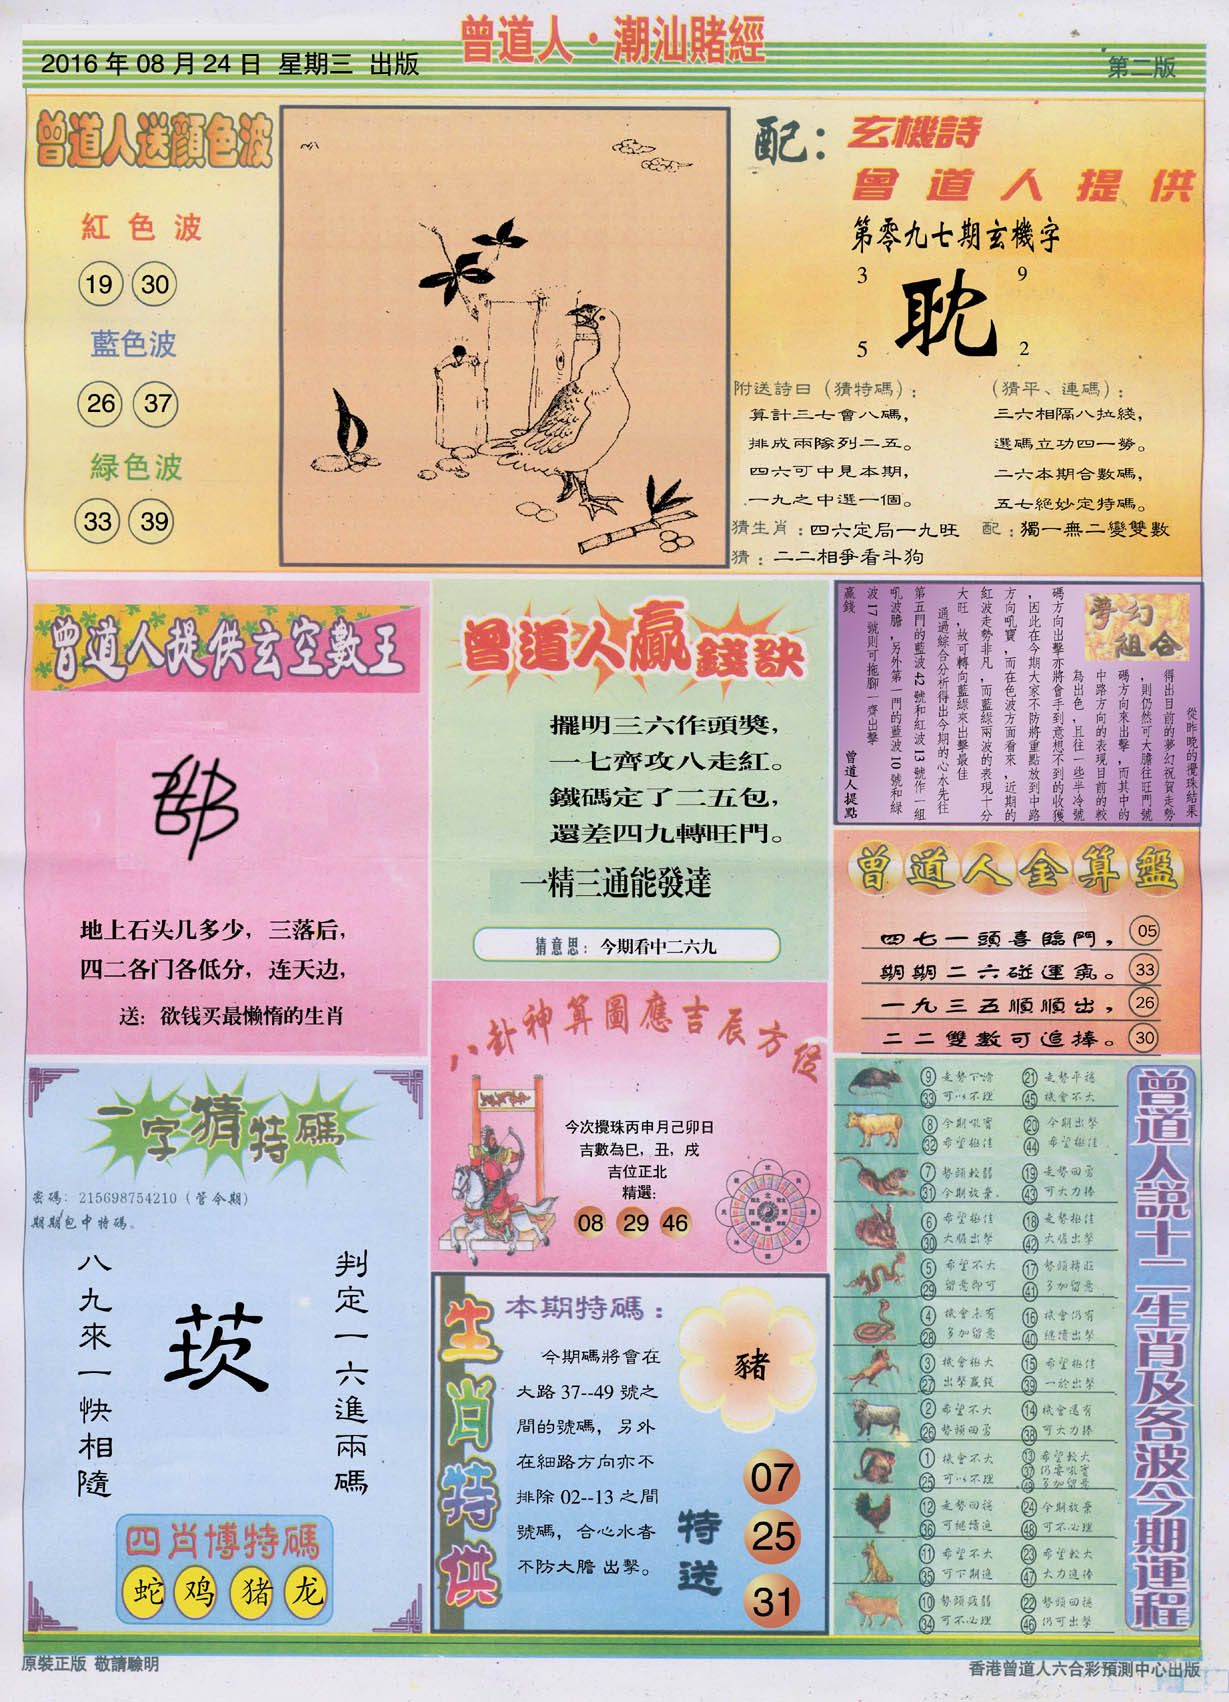 曾道人·潮汕賭經
2016年08月24日 星期三 出版
第二版
曾道人送顏色波
紅色波
19 30
藍色波
26 37
緑色波
33 39
配:
玄機詩
曾道人提供
第零九七期玄機字
3 9
耽
5 2
附送詩曰(猜特碼):
算計三七會八碼,
排成兩隊列二五。
四六可中見本期,
一九之中選一個。
(猜平、連碼):
三六相隔八拉綫,
選碼立功四一勞。
二六本期合數碼,
五七絕妙定特碼。
猜生肖:四六定局一九旺
配:獨一無二變雙數
猜:二二相爭看斗狗
曾道人提供玄空數王
地上石头几多少，三落后，
四二各门各低分，连天边，
送：欲钱买最懒惰的生肖
曾道人贏錢訣
擺明三六作頭獎，
一七齊攻八走紅。
鐵碼定了二五包，
還差四九轉旺門。
一精三通能發達
猜意思：今期看中二六九
夢幻組合
從昨晚的攪珠結果
得出目前的夢幻祝賀走勢
，則仍然可大膽往旺門號
碼方向來出擊，而其中的
中路方向的表現目前的較
為出色，且往一些半冷號
碼方向出擊亦將會手到意想不到的收獲
，因此在今期大家不防將重點放到中路
方向吼寶，而在色波方面看來，近期的
紅波走勢非凡，而藍綠兩波的表現十分
大旺，故可轉向藍綠來出擊最佳
通過綜合分析得出今期的心水先往
第五門的藍波42號和紅波13號作一組
吼波膽，另外第一門的藍波10號和綠
波17號則可拖腳一齊出擊
贏錢
曾道人提點
曾道人金算盤
四七一頭喜臨門， 05
期期二六碰運氣。 33
一九三五順順出， 26
二二雙數可追捧。 30
八卦神算圖應吉辰方位
今次攪珠丙申月己卯日
吉數為巳，丑，戌
吉位正北
精選：
08 29 46
一字猜特碼
密碼：215698754210（管令期）
期期包中特碼。
判定一六進兩碼
茨
八九來一快相隨
四肖博特碼
蛇 鸡 猪 龙
生肖特供
本期特碼：
今期碼將會在
大路37--49號之
間的號碼，另外
在細路方向亦不
排除02--13之間
號碼，合心水者
不防大膽 出擊。
豬
特送
07
25
31
曾道人說十二生肖及各波今期運程
9 走勢下滑 21 走勢平穩
33 可以不理 45 機會不大
8 今期吼實 20 今期出擊
32 希望極佳 44 希望極佳
7 勢頭較弱 19 走勢回勇
31 今期放棄。 43 可大力捧
6 希望極佳 18 走勢極佳
30 大膽出擊 42 大膽出擊
5 希望不大 17 勢頭轉旺
29 留意即可 41 多加留意
4 機會未有 16 機會仍有
28 多加留意 40 繼續出擊
3 機會極大 15 希望極佳
27 出擊贏錢 39 一於出擊
2 希望不大 14 機會還有
26 勢頭回勇 38 可大力捧
1 機會不大 13 希望較大
25 可以不理 37 仍要吼實
49 多加留意
12 走勢回穩 24 今期放棄
36 可繼續追 48 可不必理
11 希望不大 23 希望較大
35 可下期追 47 大力追捧
10 勢頭疲弱 22 勢頭回穩
34 可不必理 46 仍可出擊
原裝正版 敬請驗明
香港曾道人六合彩預測中心出版